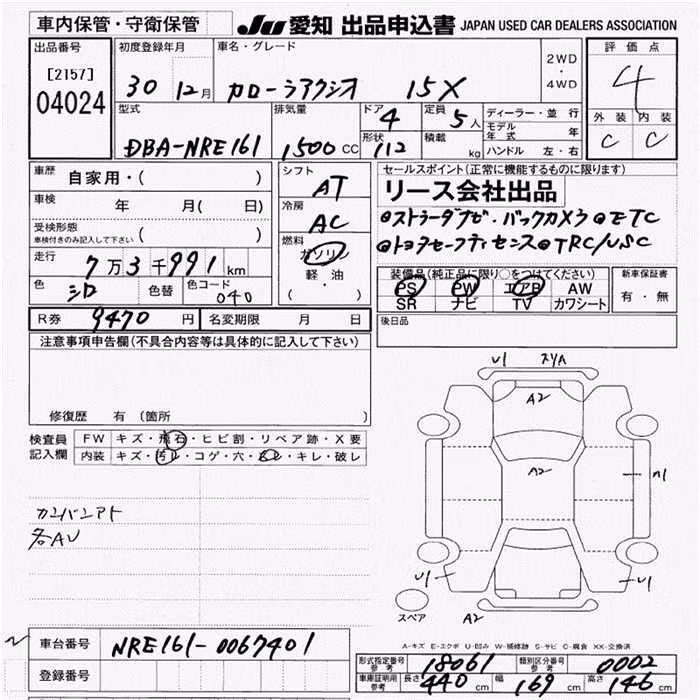 車内保管・守衛保管
JU 愛知 出品申込書 JAPAN USED CAR DEALERS ASSOCIATION
出品番号
[2157]
04024
初度登録年月
30 12月
車名・グレード
カローラアクシオ 15X
2WD
・
4WD
評価点
4
外装 内装
C C
型式
DBA-NRE161
排気量
1500cc
ドア 4
形状 112
定員 5人
積載 kg
ディーラー・並行
モデル年式 年
ハンドル 左・右
車歴 自家用・( )
車検 年 月( 日)
受検形態
車検付きのみ記入して下さい ( )
走行 7万3千991km
色 シロ 色替 色コード 040
シフト
AT
冷房
AC
燃料
ガソリン
軽・油
( ・ )
セールスポイント(正常に機能するものに限ります)
リース会社出品
@ストラーダナビ・バックカメラ@ETC
@トヨタセーフティセンス@TRC/VSC
装備品(純正品に限り○をつけてください)
PS PW エアB AW
SR ナビ TV カワシート
新車保証書
有・無
後日品
R券 9470円 名変期限 月 日
注意事項申告欄(不具合内容等は具体的に記入して下さい)
修復歴 有(箇所 )
検査員記入欄
FW キズ・飛石・ヒビ割・リペア跡・X要
内装 キズ・汚レ・コゲ・穴・スレ・キレ・破レ
カンバンアト
各AU
U1 スリA
A2
A2
A1
U1 U1
スペア A2
A-キズ E-エクボ U-凹み W-補修跡 S-サビ C-腐食 XX-交換済
車台番号 NRE161-0067401
登録番号
形式指定番号参考 18061 類別区分番号参考 0002
車庫証明用参考 長さ 440cm 幅 169cm 高さ 146cm